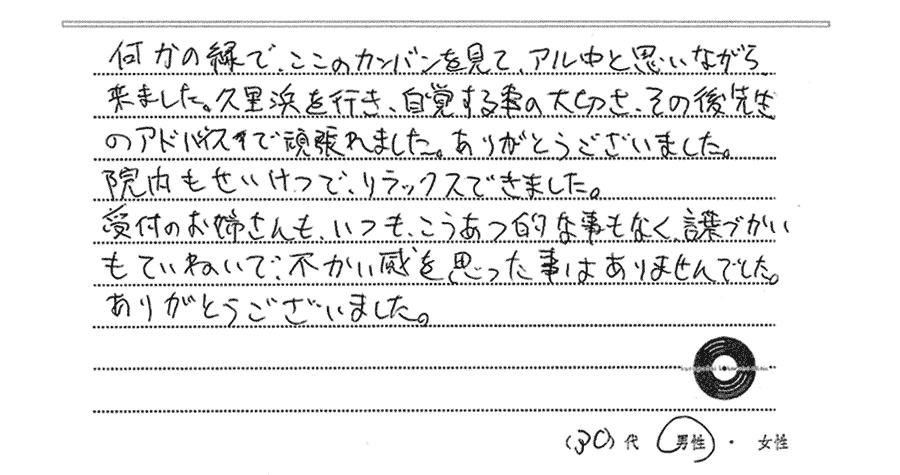 何かの縁で、ここのカンバンを見て、アル中と思いながら
来ました。久里浜を行き、自覚する事の大切さ、その後先生
のアドバイスまで頑張れました。ありがとうございました。
院内もせいけつで、リラックスできました。
受付のお姉さんも、いつも、こうあつ的な事もなく、言葉づかい
もていねいで、不かい感を思った事はありませんでした。
ありがとうございました。
(30)代 男性 ・ 女性